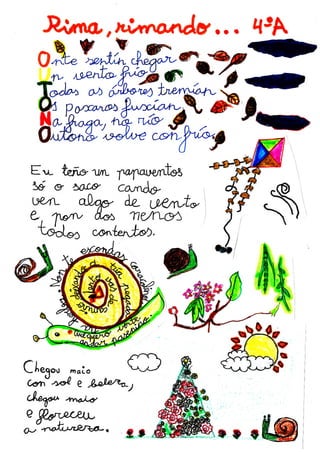 Rima, rimando... 4ºA
Onte sentín chegar
Un vento frío
Todas as árbores tremían
Os paxaros fuxían
Na fraga, no río
Outono volve con frío.
Eu teño un papaventos
só o saco cando
ven algo de vento
e pon aos nenos
todos contentos.
Non te escondas caracoliño
Chegou maio
con sol e beleza,
chegou maio
e floreceu
a natureza.